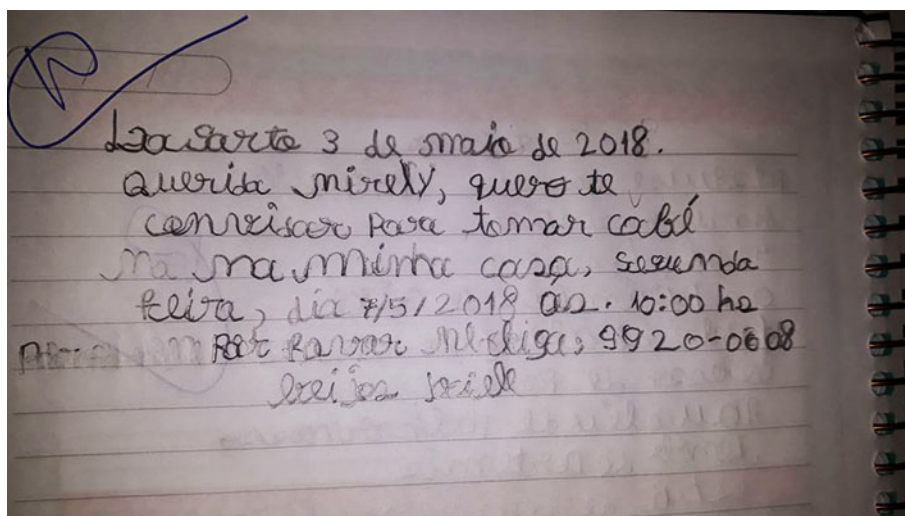 3 de maio de 2018.
Querida mirely, quero te
convisar para tomar cabé
na na minha casa, segunda
feira, dia 7/5/2018 as. 10:00 hs
Por favor me liga: 9920-0608
beijos